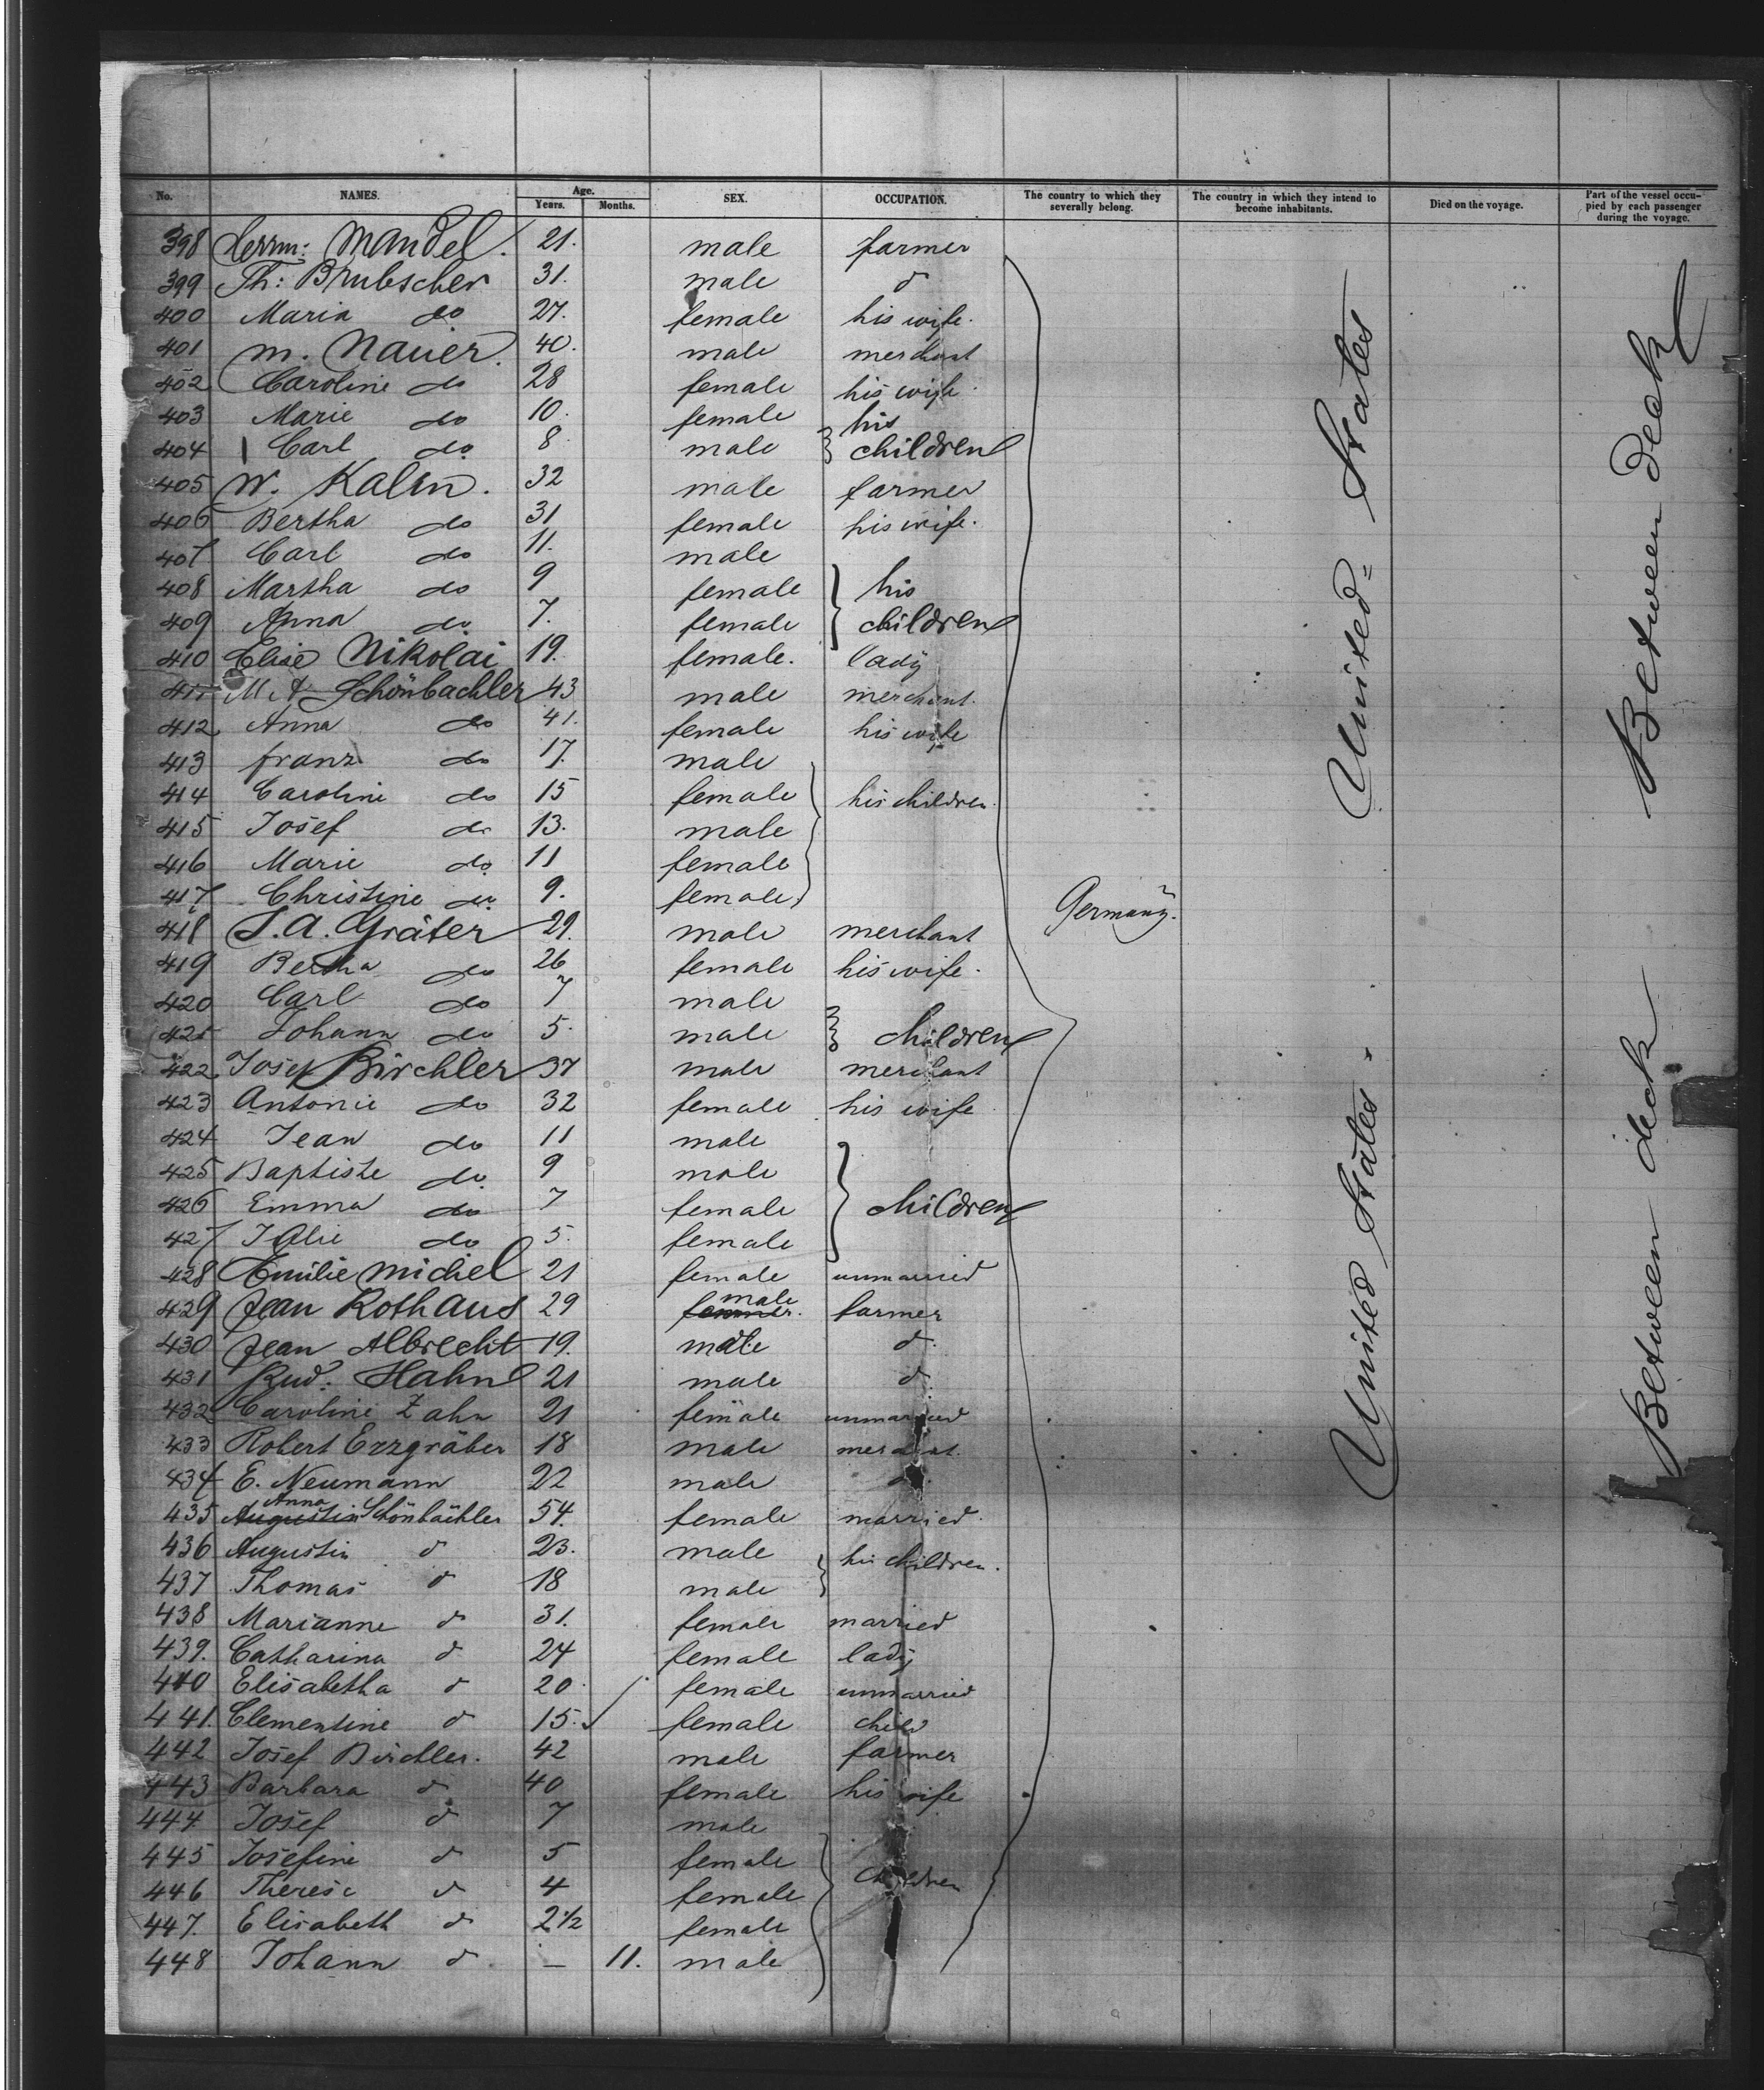 No. NAMES. Age. Years. Months. SEX. OCCUPATION. The country to which they severally belong. The country in which they intend to become inhabitants. Died on the voyage. Part of the vessel occupied by each passenger during the voyage.
398 Herm: Mandel. 21. male farmer
399 Th: Brubscher 31. male d
400 Maria do 27. female his wife.
401 M. Nauer. 40. male merchant
402 Caroline do 28 female his wife.
403 Marie do 10. female his
404 Carl do 8 male children
405 W. Kalin. 32 male farmer
406 Bertha do 31 female his wife.
407 Carl do 11. male
408 Martha do 9 female his
409 Anna do 7. female children
410 Elise Nikolai 19. female. lady
411 M. A Schönbachler 43 male merchant.
412 Anna do 41. female his wife
413 franz do 17. male
414 Caroline do 15 female his children.
415 Josef do 13. male
416 Marie do 11 female
417 Christine do 9. female
Germany.
418 S. A. Gräter 29. male merchant
419 Bertha do 26 female his wife.
420 Carl do 7 male
421 Johann do 5. male children
422 Josef Birchler 37 male merchant
423 Antonie do 32 female his wife
424 Jean do 11 male
425 Baptiste do 9 male
426 Emma do 7 female children
427 do 5. female
428 Emilie Michel 21 female unmarried
429 Jean Rothaus 29 male farmer
430 Jean Albrecht 19. male d.
431 Rud. Hahn 21 male d
432 Caroline Zahn 21 female unmarried
433 Robert Erzgräber 18 male merchant.
434 E. Neumann 22 male
435 Augustin Anna Schönbächler 54. female married.
436 Augustin d 23. male his children.
437 Thomas d 18 male
438 Marianne d 31. female married
439. Catharina d 24 female lady
440 Elisabetha d 20. female unmarried
441. Clementine d 15. female child
442 Josef Birchler. 42 male farmer
443 Barbara d 40 female his wife
444 Josef d 7 male
445 Josefine d 5 female
446 Therese d 4 female children
447. Elisabeth d 2 1/2 female
448 Johann d — 11. male
United States
United States
Between deck
Between deck